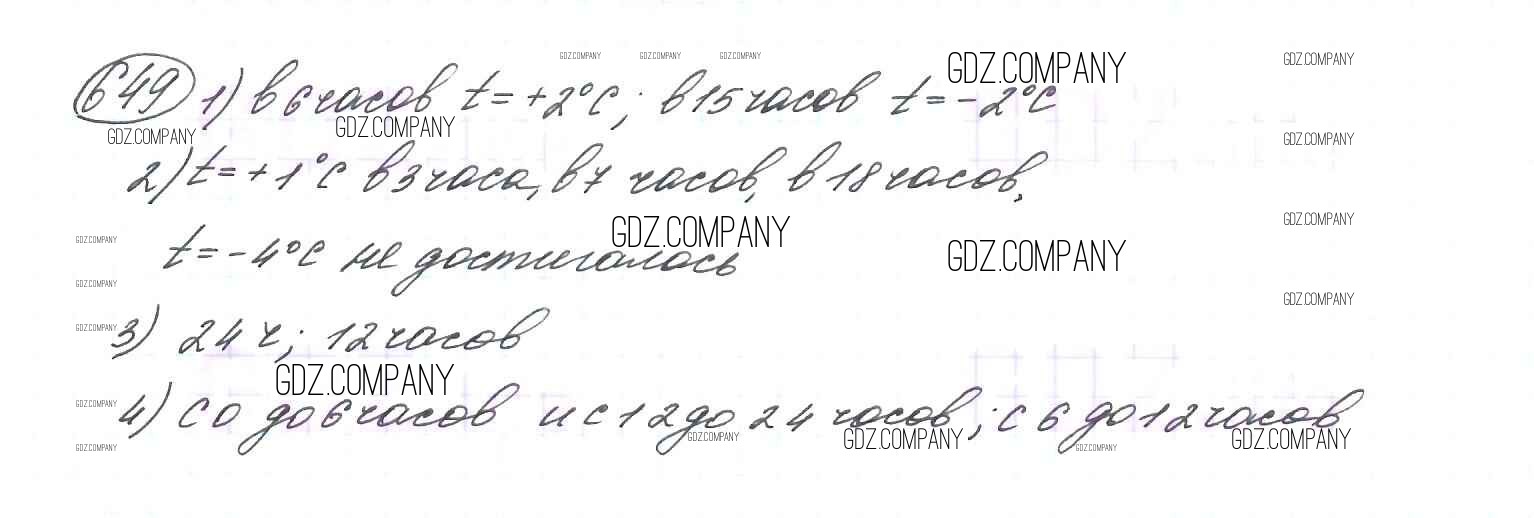 GDZ.COMPANY GDZ.COMPANY GDZ.COMPANY GDZ.COMPANY GDZ.COMPANY
649 1) в 6 часов t = +2°С; в 15 часов t = -2°С
GDZ.COMPANY GDZ.COMPANY GDZ.COMPANY
2) t = +1°С в 3 часа, в 7 часов, в 18 часов,
GDZ.COMPANY GDZ.COMPANY GDZ.COMPANY
t = -4°С не достигалось GDZ.COMPANY
GDZ.COMPANY GDZ.COMPANY
3) 24 ч; 12 часов
GDZ.COMPANY
GDZ.COMPANY
GDZ.COMPANY
4) с 0 до 6 часов и с 12 до 24 часов; с 6 до 12 часов
GDZ.COMPANY GDZ.COMPANY GDZ.COMPANY GDZ.COMPANY GDZ.COMPANY